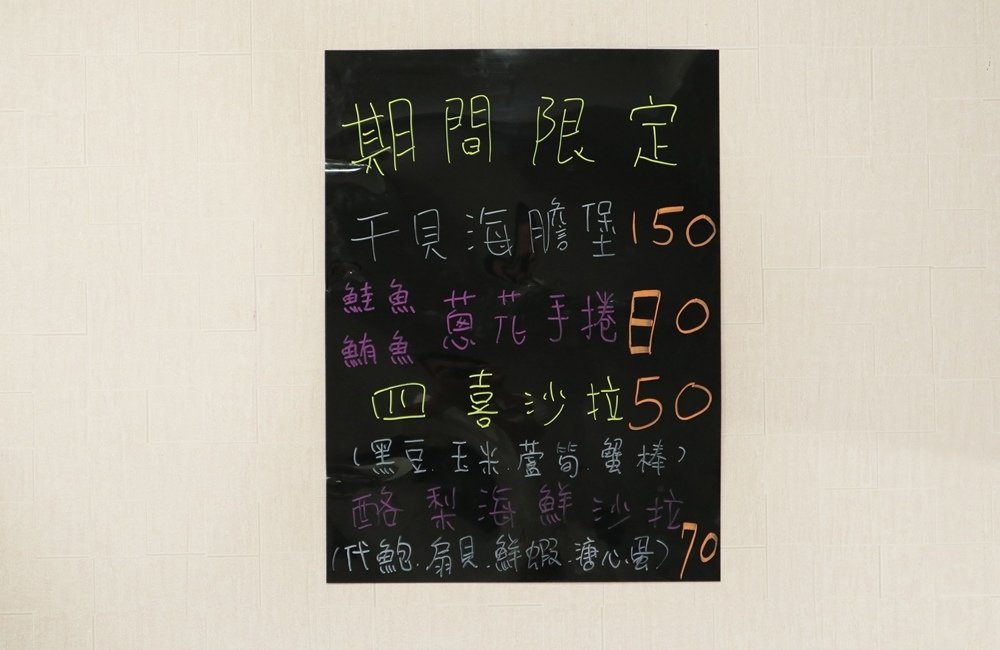 期間限定
干貝海膽堡150
鮭魚
鮪魚 蔥花手捲80
四喜沙拉50
(黑豆.玉米.蘆筍.蟹棒)
酪梨海鮮沙拉
(代鮑.扇貝.鮮蝦.溏心蛋)70